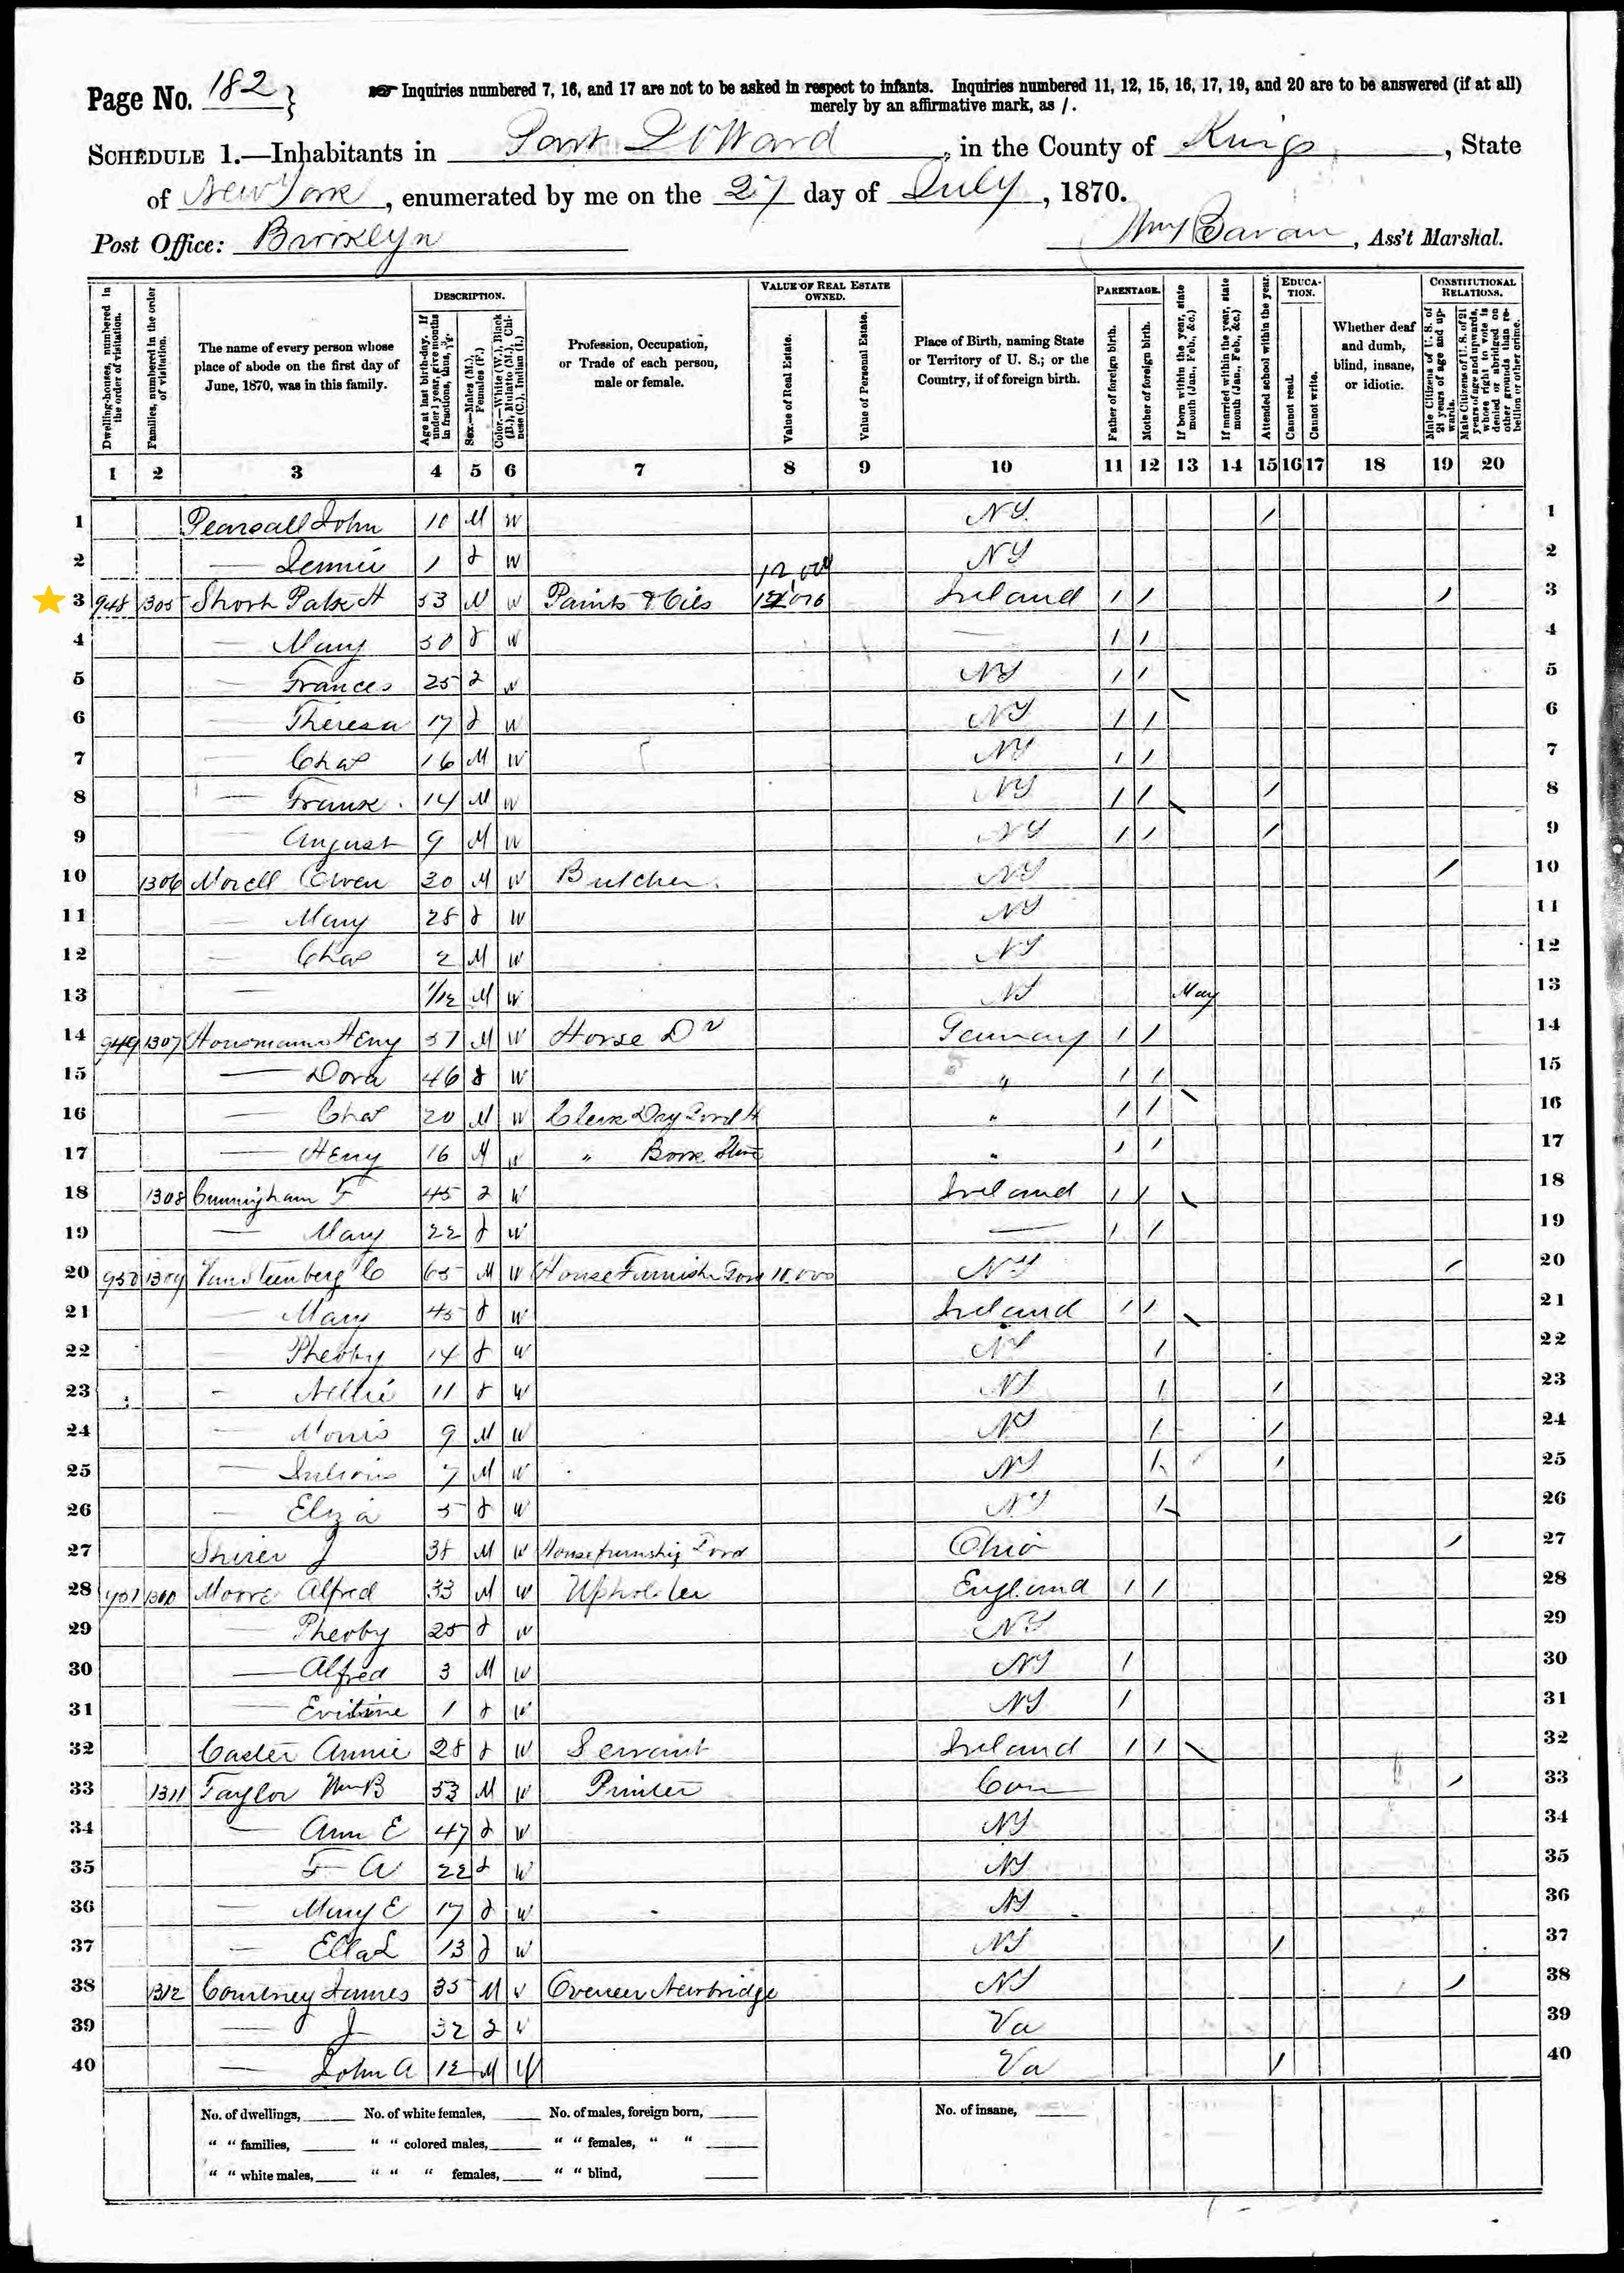 Page No. 182}
Inquiries numbered 7, 16, and 17 are not to be asked in respect to infants. Inquiries numbered 11, 12, 15, 16, 17, 19, and 20 are to be answered (if at all)
merely by an affirmative mark, as /.
SCHEDULE 1.—Inhabitants in Part Ward, in the County of Kings, State
of New York, enumerated by me on the 27 day of July, 1870.
Post Office: Brooklyn
Wm, Ass't Marshal.
Dwelling-houses, numbered in the order of visitation.
Families, numbered in the order of visitation.
The name of every person whose place of abode on the first day of June, 1870, was in this family.
DESCRIPTION.
Age at last birth-day. If under 1 year, give months in fractions, thus, 3/12.
Sex.—Males (M.), Females (F.)
Color.—White (W.), Black (B.), Mulatto (M.), Chinese (C.), Indian (I.)
Profession, Occupation, or Trade of each person, male or female.
VALUE OF REAL ESTATE OWNED.
Value of Real Estate.
Value of Personal Estate.
Place of Birth, naming State or Territory of U. S.; or the Country, if of foreign birth.
PARENTAGE.
Father of foreign birth.
Mother of foreign birth.
If born within the year, state month (Jan., Feb., &c.)
If married within the year, state month (Jan., Feb., &c.)
Attended school within the year.
EDUCATION.
Cannot read.
Cannot write.
Whether deaf and dumb, blind, insane, or idiotic.
CONSTITUTIONAL RELATIONS.
Male Citizens of U. S. of 21 years of age and upwards.
Male Citizens of U. S. of 21 years of age and upwards, whose right to vote is denied or abridged on other grounds than rebellion or other crime.
1 2 3 4 5 6 7 8 9 10 11 12 13 14 15 16 17 18 19 20
1 Pearsall John 10 M W NY / 1
2 — Jennie 1 F W 12,000 NY 2
3 948 1305 Short Patk H 53 M W Paints & Oils Ireland / / / 3
4 — Mary 50 F W — / / 4
5 — Frances 25 F W NY / / 5
6 — Theresa 17 F W NY / / 6
7 — Chas 16 M W NY / / 7
8 — Frank 14 M W NY / / / 8
9 — August 9 M W NY / / / 9
10 1306 Morell Owen 30 M W Butcher NY / 10
11 — Mary 28 F W NY 11
12 — Chas 2 M W NY 12
13 — 1/12 M W NY May 13
14 949 1307 Housmann Henry 51 M W Horse Dr Germany / / 14
15 — Dora 46 F W " / / 15
16 — Chas 20 M W Clerk Day Good " / / 16
17 — Henry 16 M W " Book Store " / / 17
18 1308 Cunnigham F 45 F W Ireland / / 18
19 — Mary 22 F W — / / 19
20 950 1309 Van Steenberg C 65 M W House Furnish Good 10,000 NY / 20
21 — Mary 45 F W Ireland / / 21
22 — Pheoby 14 F W NY / 22
23 — Nellie 11 F W NY / / 23
24 — Morris 9 M W NY / / 24
25 — 7 M W NY / / 25
26 — Eliza 5 F W NY / 26
27 Shirer J 38 M W House furnishig Good Ohio / 27
28 951 1310 Moore Alfred 33 M W Upholster England / / 28
29 — Pheoby 25 F W NY 29
30 — Alfred 3 M W NY / 30
31 — 1 F W NY / 31
32 Caster Annie 28 F W Servant Ireland / / 32
33 1311 Taylor Wm B 53 M W Printer Con / 33
34 — Ann E 47 F W NY 34
35 — F A 22 F W NY 35
36 — Mary E 17 F W NY 36
37 — Ella L 13 F W NY / 37
38 1312 Courtney James 35 M W Overseer Newbridge NY / 38
39 — J 32 F W Va 39
40 — John A 12 M W Va / 40
No. of dwellings, No. of white females, No. of males, foreign born, No. of insane,
" " families, " " colored males, " " females, " "
" " white males, " " " females, " " blind,